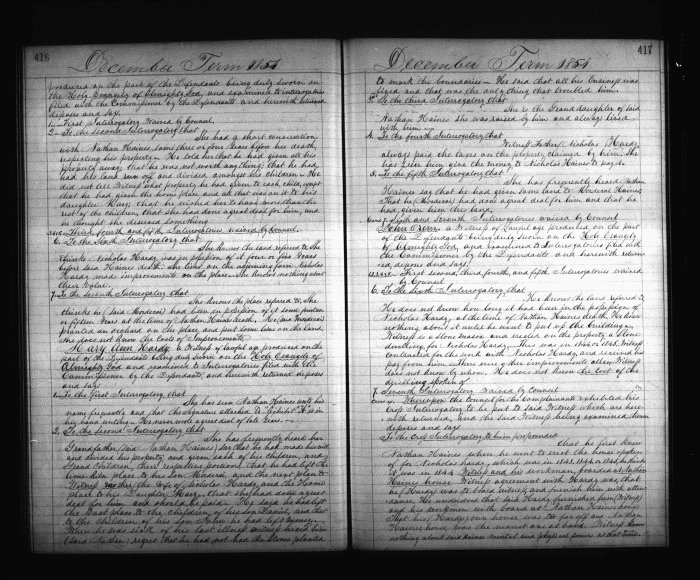 416
December Term 1851
produced on the part of the Defendants being duly sworn on
the Holy Evangely of Almighty God, and examined to interrogatories
filed with the Commissioner by the Defendants and herewith returned
deposes and say.
1. First Interrogatory Waived by Counsel.
2. To the Second Interrogatory that
She had a short conversation
with Nathan Haines, some three or four Years before his death,
respecting his property. He told her that he had given all his
property away, that he was not worth anything; that he had
had his land run off and divided amongst his children. He
did not tell Witness what property he had given to each child, except
that he had given the home place and all that was on it to his
daughter Mary, that he wished her to have more than the
rest of the children, that she had done a great deal for him, and
he thought she deserved something
Third, fourth and fifth Interrogatories waived by Counsel.
6. To the Sixth Interrogatory that
She knows the land referred to, She
thinks Nicholas Hardy was in possession of it four or five Years
before said Haines death. She lived on the adjoining farm. Nicholas
Hardy made improvements on the place. She knows nothing about
their value.
7. To the Seventh Interrogatory that
She knows the place referred to, She
thinks he (said Mordecai) had been in possession of it some fourteen
or fifteen Years at the time of Nathan Haines death. He (said Mordecai)
planted an orchard on the place and put some lime on the land.
She does not know the Cost of Improvements
Mary Ann Hardy a Witness of lawful age produced on the
part of the Defendants being duly sworn on the Holy Evangely of
Almighty God and examined to Interrogatories filed with the
Commissioner by the Defendants, and herewith returned deposes
and say.
1. To the first Interrogatory that
She has seen Nathan Haines write his
name frequently and that the Signature attached to Exhibit is in
his hand writing. He never wrote a great deal of late Years.
2. To the second Interrogatory that
She has frequently heard her
Grandfather (said Nathan Haines) say that he had made his will
and divided his property and given each of his children, and
Grand Children, their respective portions. That he had left the
lime kiln place to his son Mordecai, and the next place to
Witness mother, the wife of Nicholas Hardy, and the Home
place to his Daughter Mary, that she had done a great
deal for him and should be paid. He said he had left
the East place to the children of his son Daniel, and that
to the children of his son he had left money.
When he was sick of his last illness witness heard him
(said Nathan) regret that he had not had the Stones planted
417
December Term 1851
to mark the boundaries. He said that all his business was
fixed and that was the only thing that troubled him.
3. To the third Interrogatory that
She is the Granddaughter of said
Nathan Haines she was raised by him and always lived
with him
4. To the fourth Interrogatory that
Witness Father, Nicholas Hardy
always paid the taxes on the property claimed by him. She
has seen him give the money to Nicholas Haines to pay it.
5. To the fifth Interrogatory that
She has frequently heard Nathan
Haines say that he had given some land to Mordecai Haines,
That he (Mordecai) had done a great deal for him and that he
had given him this land.
Sixth and Seventh Interrogatories waived by Counsel
a Witness of lawful age produced on the part
of the Defendants being duly sworn on the Holy Evangely
of Almighty God, and examined to Interrogatories filed with
the Commissioner by the Defendants and herewith returned
deposes and says.
First second third, fourth, and fifth Interrogatories waived
by Counsel
6. To the Sixth Interrogatory that
He knows the land referred to
He does not know how long it had been in the possession of
Nicholas Hardy, at the time of Nathan Haines death. He knew
nothing about it until he went to put up the building.
Witness is a Stone Mason and erected on the property a Stone
dwelling for Nicholas Hardy. This was in 1844 or 1845. Witness
contracted for the work with Nicholas Hardy, and received his
pay from him. There were other improvements also. Witness
does not know by whom. He does not know the Cost of the
dwelling spoken of
7. Seventh Interrogatory waived by Counsel
Whereupon the Counsel for the Complainants exhibited his
Cross Interrogatory to be put to said Witness which are here-
with returned, and the said Witness being examined thereon
deposes and say
To the Cross Interrogatory to him propounded
That he first knew
Nathan Haines when he went to erect the house spoken
of for Nicholas Hardy, which was in 1843, 1844 or 1845, he thinks
it was in 1844. Witness and his workmen boarded at Nathan
Haines house. Witness agreement with Hardy was that
he (Hardy) was to board witness, and furnish him with atten-
dance. He understood that said Hardy furnished him (Witness)
and his workmen with board at Nathan Haines house
That his (Hardy's) own house was too far off and Nathan
Haines house was the nearest one at hand. Witness knows
nothing about said Haines mental and physical powers at that time.